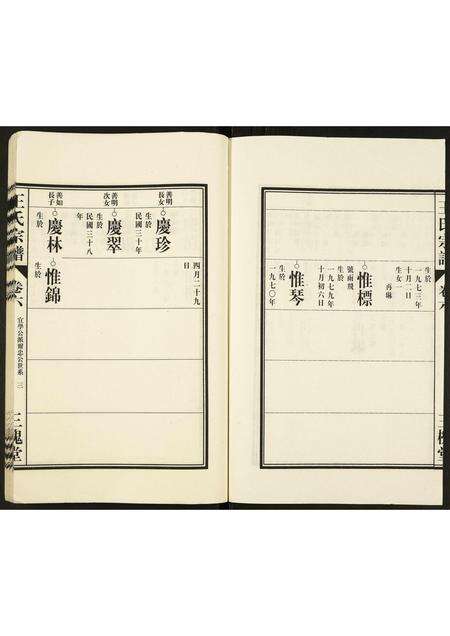 王氏宗譜
卷六
三槐堂
生於
一九七三年
十月二日
生女一
惟標
號雨飛
生於
一九七九年
十月初六日
惟琴
生於
一九七〇年
四月二十九
日
善明
長女
慶珍
生於
民國三十年
善明
次女
慶翠
生於
民國三十八
年
善如
長子
慶林
生於
惟錦
生於
王氏宗譜
卷六
宣學公派爾忠公世系
三
三槐堂